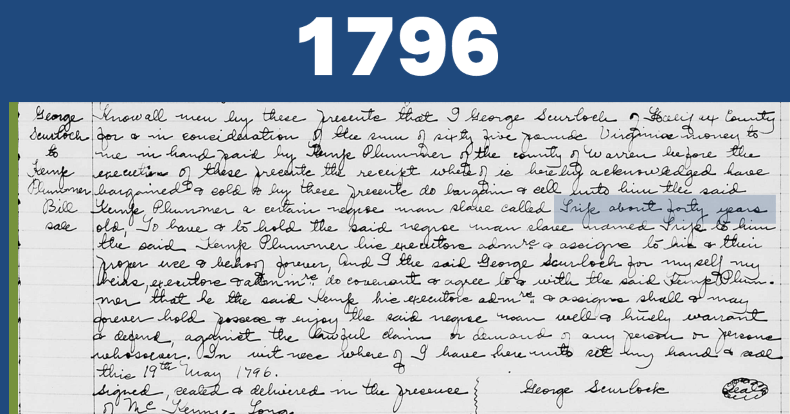 1796
George
Scurloch
to
Kemp
Plummer
Bill
sale
Know all men by these presents that I George Scurloch of Halifax County
for & in consideration of the sum of sixty five pounds Virginia money to
me in hand paid by Kemp Plummer of the county of Warren before the
execution of these presents the receipt where of is here by acknowledged have
bargained & sold & by these presents do bargain & sell unto him the said
Kemp Plummer a certain negroe man slave called Trip about forty years
old, To have & to hold the said negroe man slave named Trip to him
the said Kemp Plummer his executors admrs & assigns to his & their
proper use & behoof forever, And I the said George Scurloch for myself my
heirs, executors & admrs. do covenant & agree to & with the said Kemp Plum-
mer that he the said Kemp his executors admrs. & assigns shall & may
forever hold possess & enjoy the said negroe man well & truely warrant
& defend, against the lawful claim or demand of any person or persons
whosoever. In witness where of I have here unto set my hand & seal
this 19th May 1796.
signed, sealed & delivered in the presence George Scurlock Seal
of Mc Kennie Long